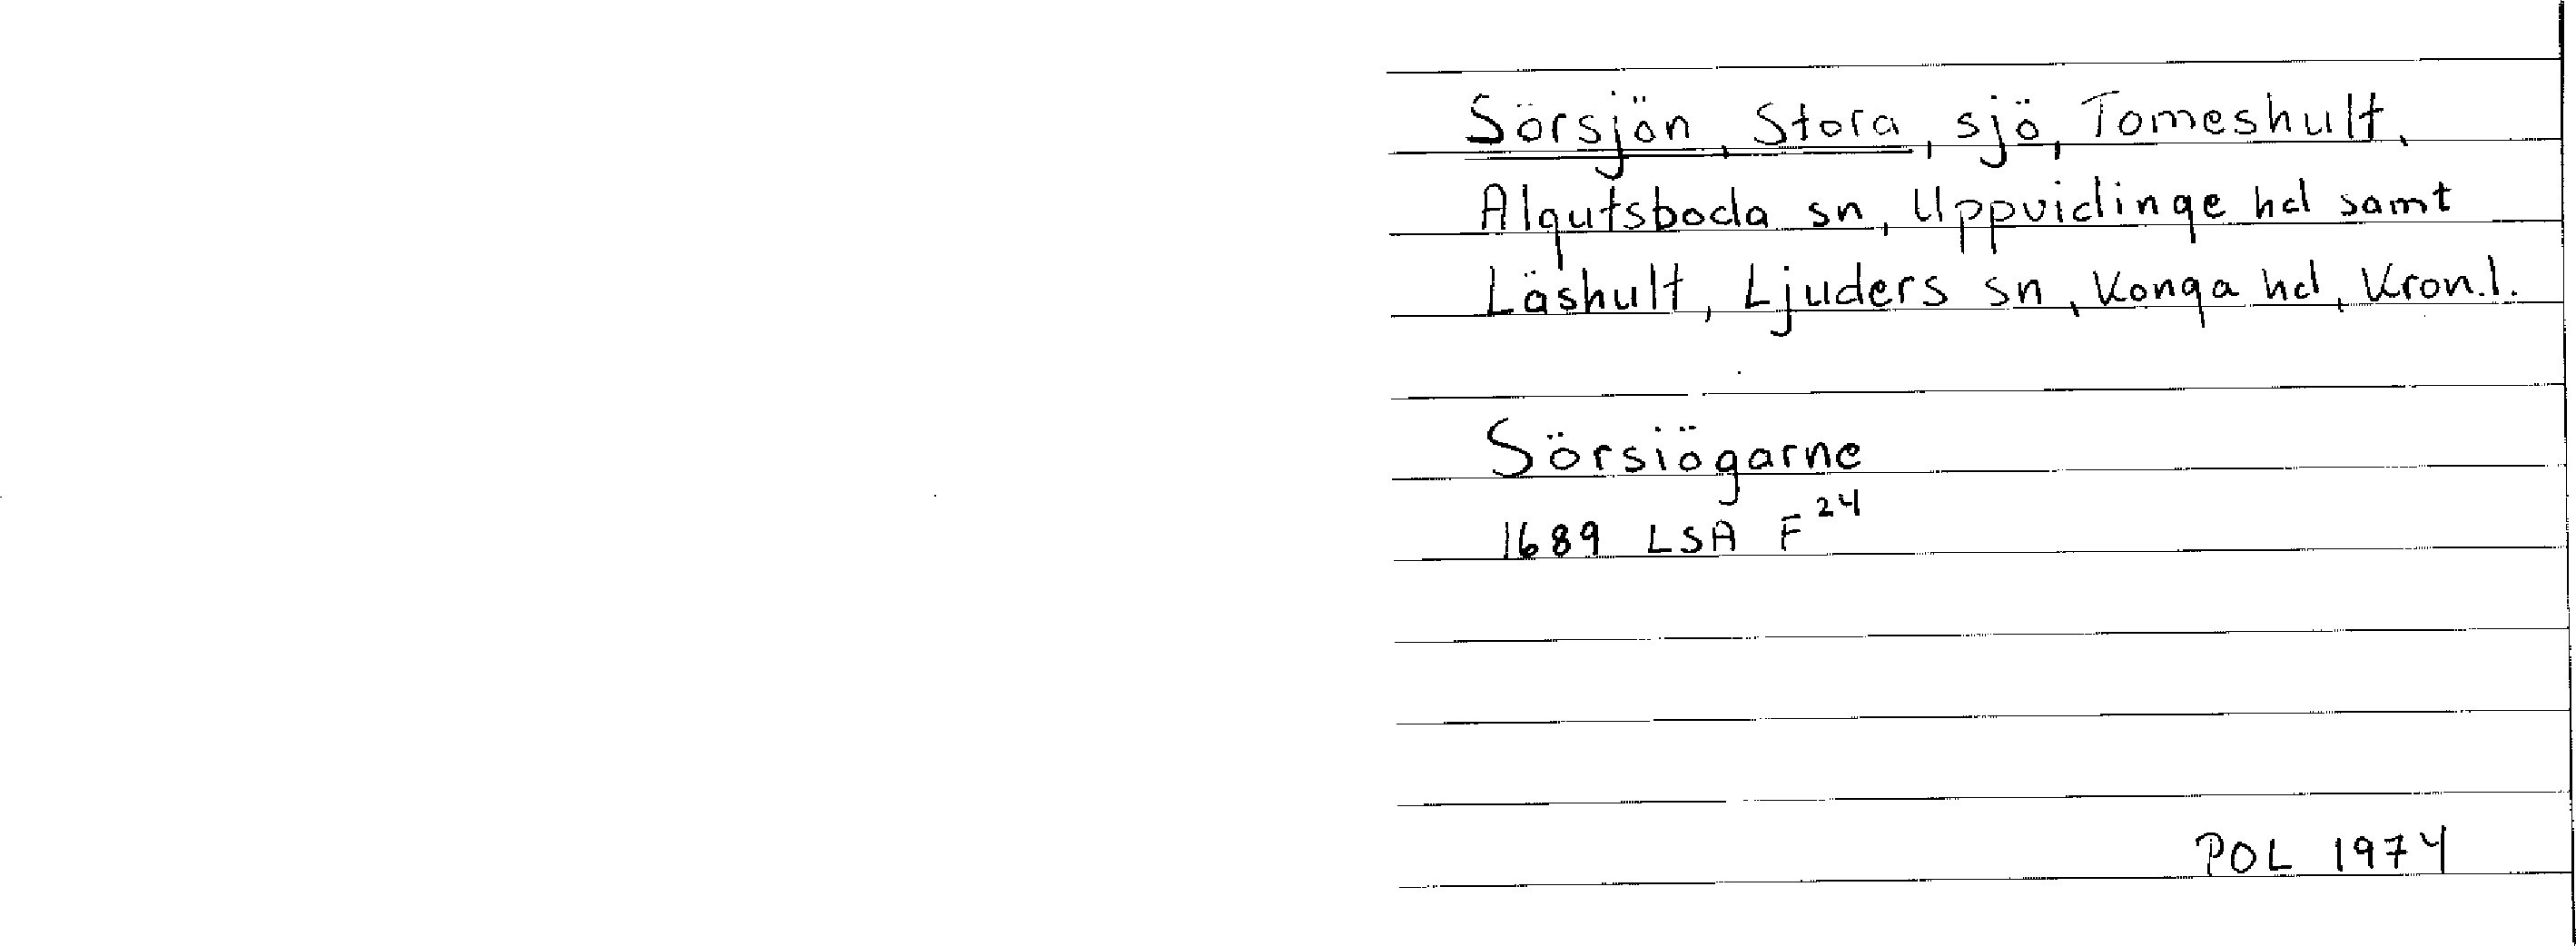 Sörsjön, Stora, sjö, Tomeshult,
Algutsboda sn, Uppvidinge hd samt
Läshult, Ljuders sn, Konga hd, Kron.l.
Sörsiögarne
1689 LSA F 24
POL 1974